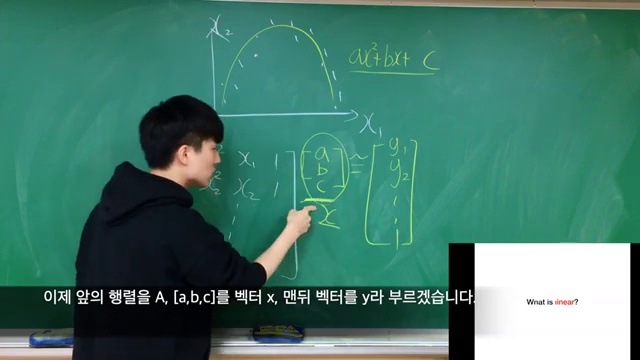 x₂
ax²+bx+ c
x₁
x₁ 1 a ≈ y₁
x₂ 1 b y₂
c
x
이제 앞의 행렬을 A, [a,b,c]를 벡터 x, 맨뒤 벡터를 y라 부르겠습니다.
What is linear?